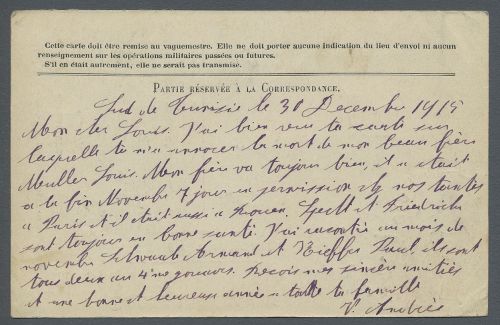 Cette carte doit être remise au vaguemestre. Elle ne doit porter aucune indication du lieu d'envoi ni aucun
renseignement sur les opérations militaires passées ou futures.
S'il en était autrement, elle ne serait pas transmise.
PARTIE RÉSERVÉE A LA CORRESPONDANCE.
Sud de Tunisie le 30 Decembre 1915
Mon cher Louis. J'ai bien reçu ta carte sur
laquelle tu m'annonces la mort de mon beau frère
Muller Louis. Mon frère va toujours bien, il était
a la fin Novembre 7 jours en permission chez nos tantes
a Paris et il était aussi a Rouen. Hecht et Friedrich
sont toujours en bonne santé. J'ai rencontré au mois de
novembre Schwartz Armand et Kieffer Paul, ils sont
tous deux au 4me zouaves. Reçois mes sincères amitiés
et une bonne et heureuse année a toute ta famille
V. André